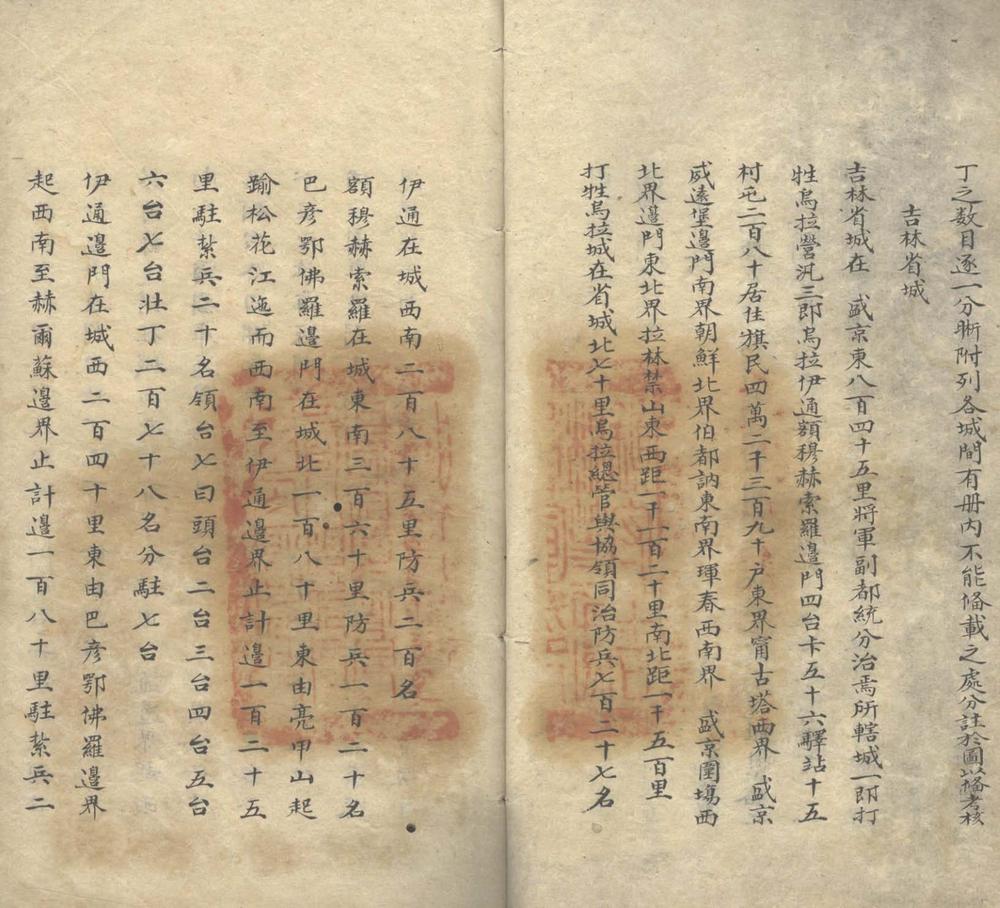 丁之数目逐一分晰附列各城間有册内不能俻載之處分註於圖以俻考核
吉林省城
吉林省城在 盛京東八百四十五里將軍副都統分治焉所轄城一即打
牲烏拉營汛三即烏拉伊通額穆赫索羅邊門四台卡五十六驛站十五
村屯二百八十居住旗民四萬二千三百九十户東界甯古塔西界 盛京
威逺堡邊門南界朝鮮北界伯都訥東南界琿春西南界 盛京圍塲西
北界邊門東北界拉林禁山東西距一千一百二十里南北距一千五百里
打牲烏拉城在省城北七十里烏拉總管與協領同治防兵七百二十七名
伊通在城西南二百八十五里防兵二百名
額穆赫索羅在城東南三百六十里防兵一百二十名
巴彦鄂佛羅邊門在城北一百八十里東由亮甲山起
踰松花江迤而西南至伊通邊界止計邊一百二十五
里駐紮兵二十名領台七曰頭台二台三台四台五台
六台七台壮丁二百七十八名分駐七台
伊通邊門在城西二百四十里東由巴彦鄂佛羅邊界
起西南至赫爾蘇邊界止計邊一百八十里駐紮兵二